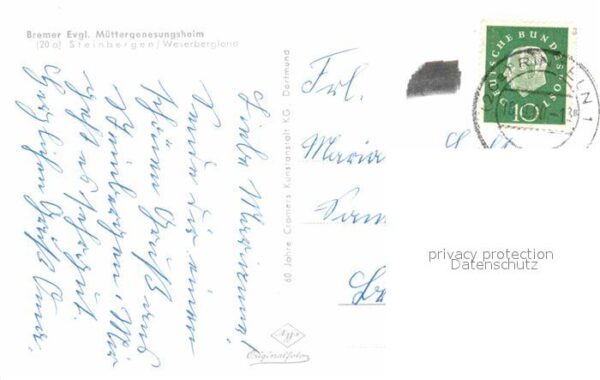 Bremer Evgl. Müttergenesungsheim
(20a) Steinbergen / Weserbergland
Liebe Mariannel
Sende Dir einen
schönen Gruß aus
Steinbergen. Mir
geht es sehr gut.
Herzlichen Gruß
60 Jahre Cramers Kunstanstalt KG. Dortmund
Agfa
Originalfoto
Frl.
Maria
DEUTSCHE BUNDESPOST
10
privacy protection
Datenschutz